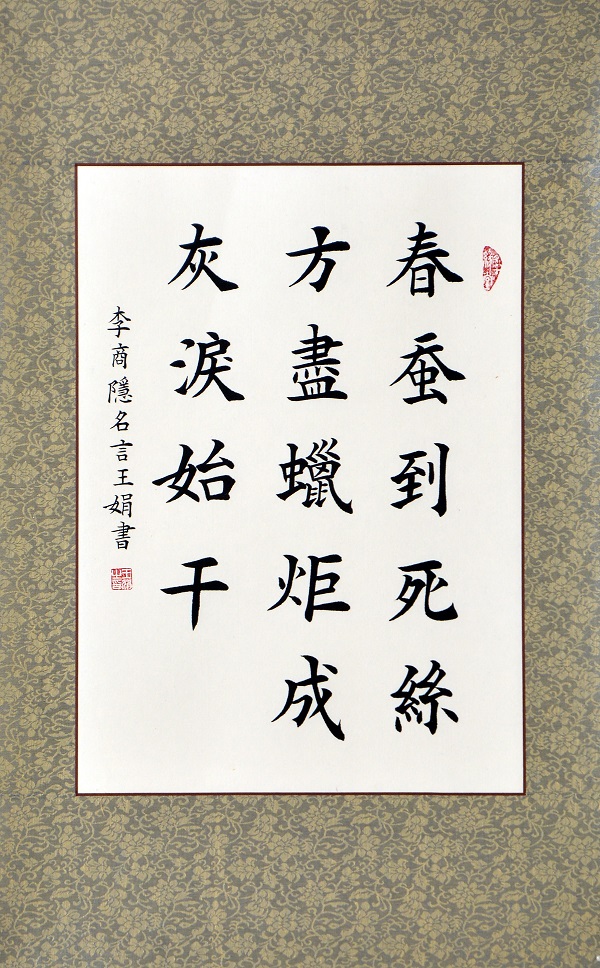 春蚕到死絲
方盡蠟炬成
灰淚始干
李商隱名言王娟書